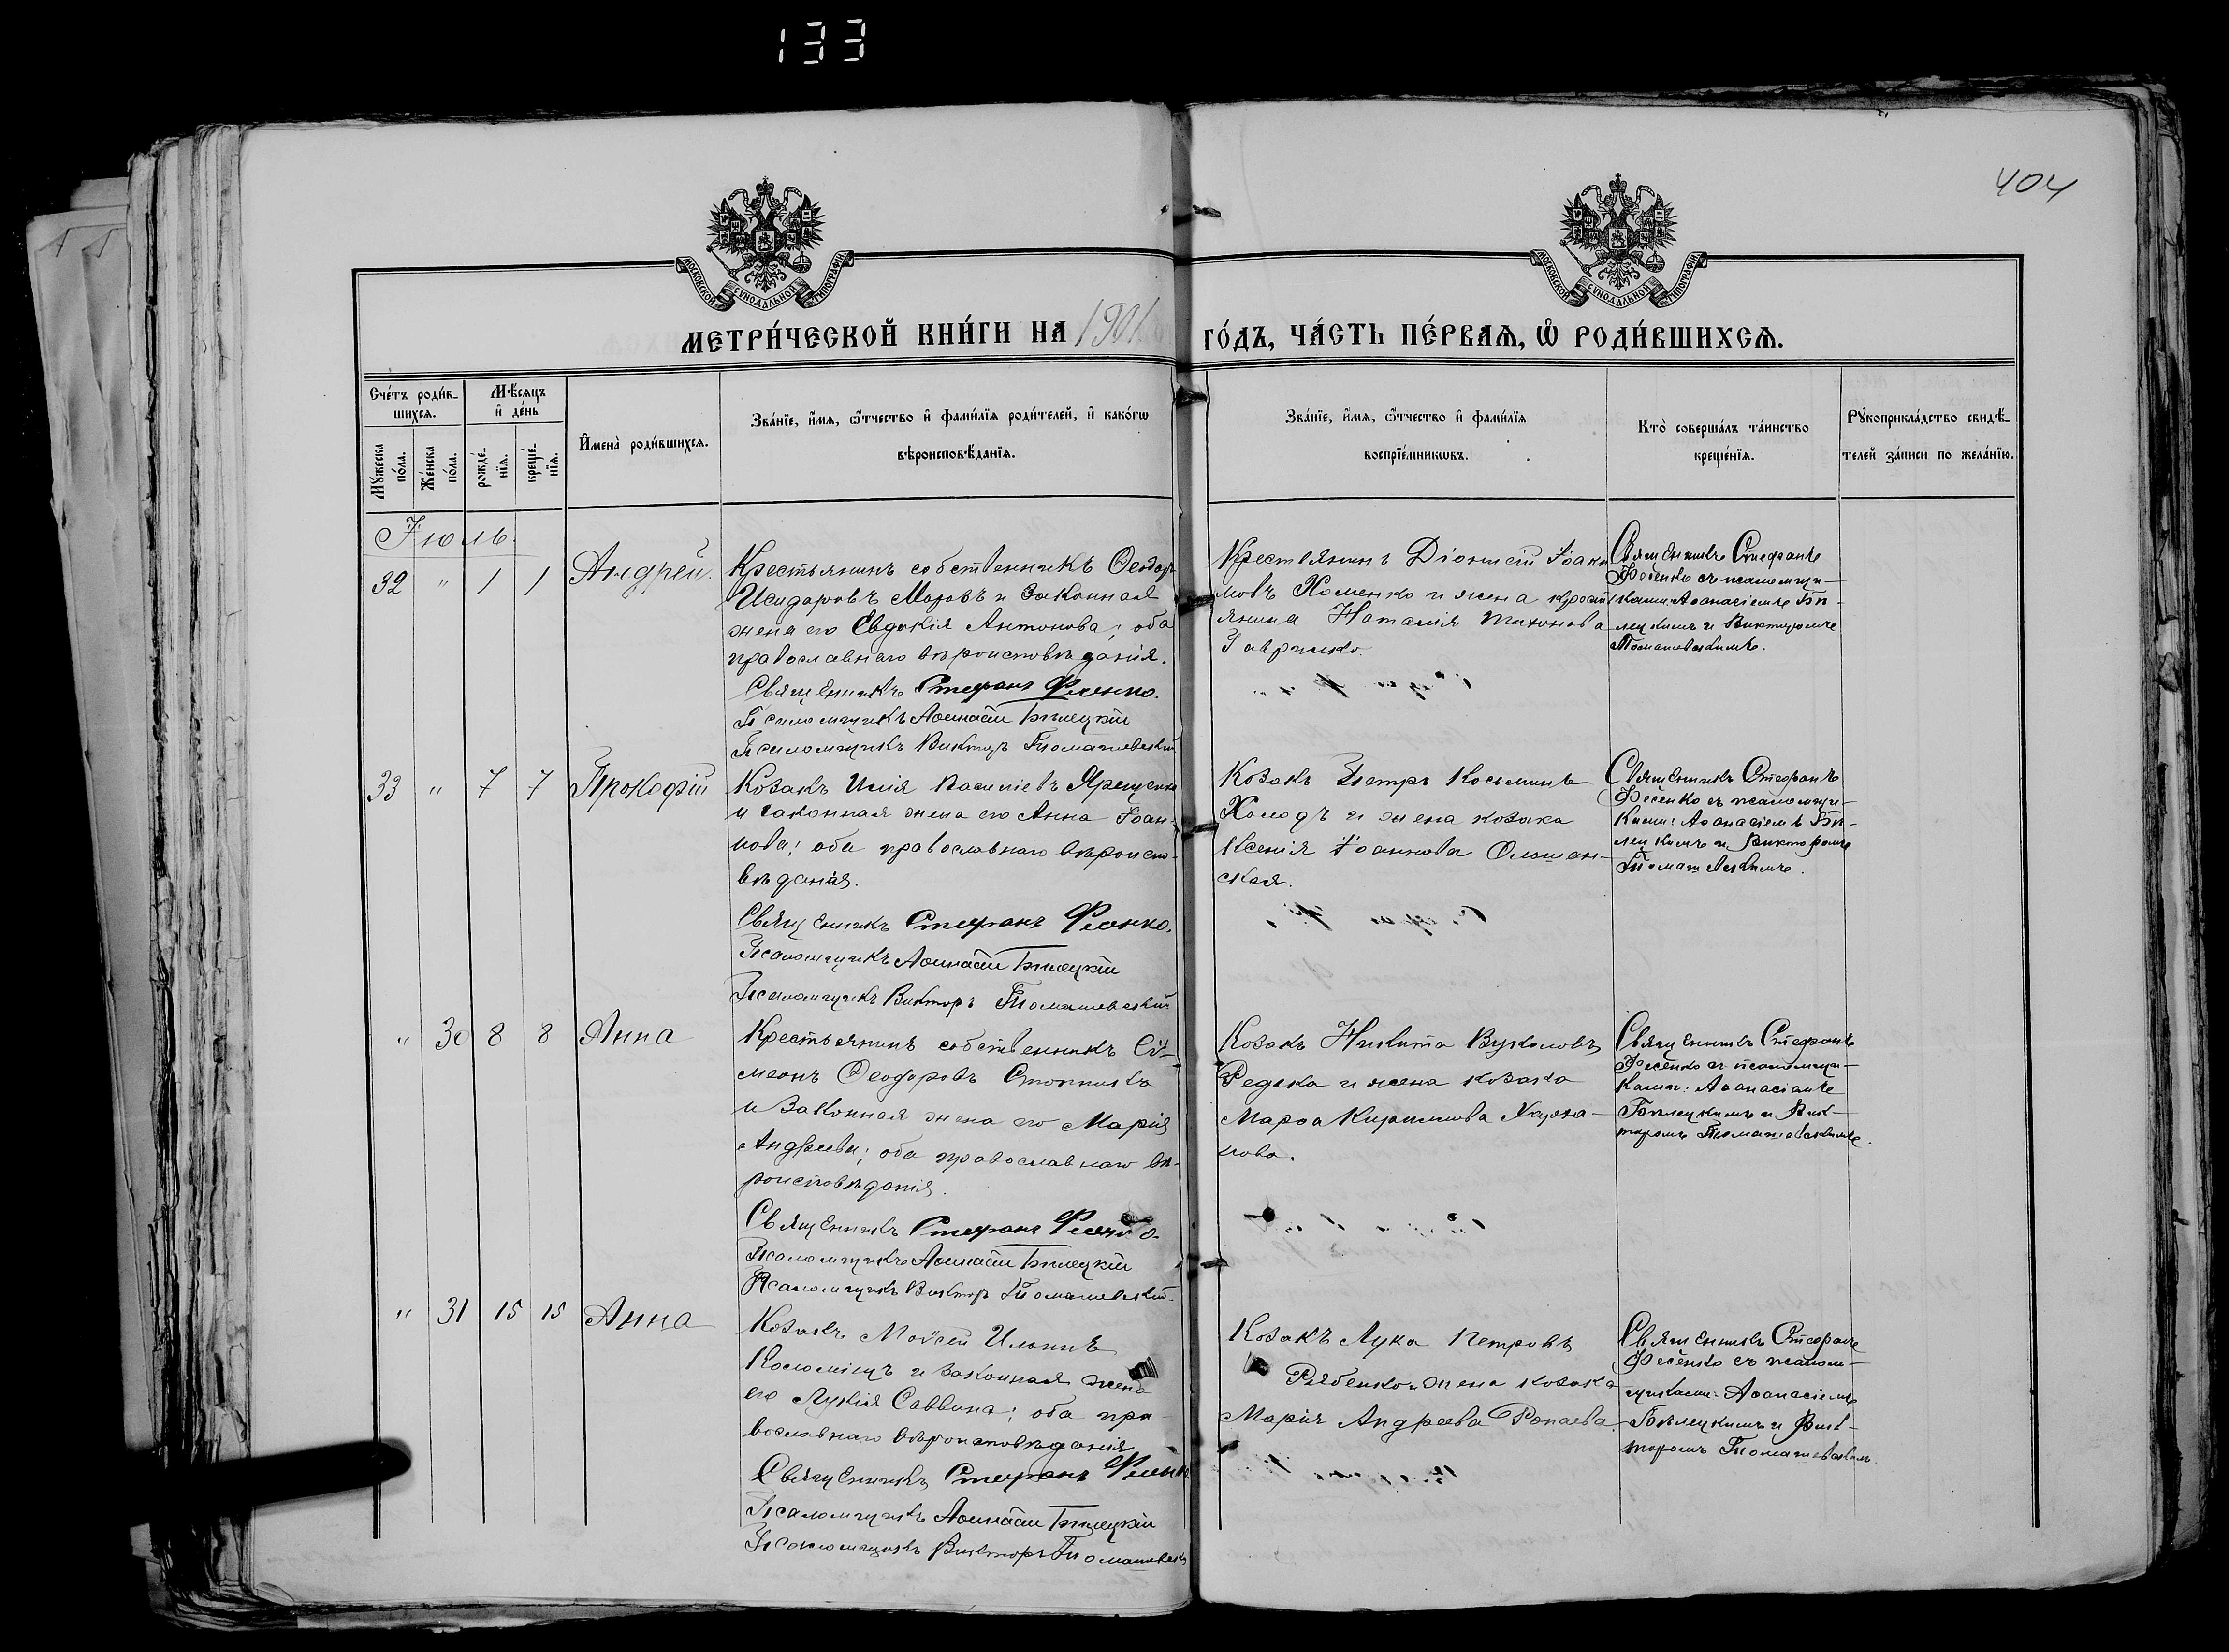 133
404
МОСКОВСКОЙ СѴНОДАЛЬНОЙ ТИПОГРАФІИ
МОСКОВСКОЙ СѴНОДАЛЬНОЙ ТИПОГРАФІИ
МЕТРИ́ЧЕСКОЙ КНИ́ГИ НА 1901 ГО́ДЪ, ЧА́СТЬ ПЕ́РВАѦ, Ѽ РОДИ́ВШИХСѦ.
Сче́тъ роди́в-
шихсѧ.
Мꙋжеска по́ла.
Же́нска по́ла.
Мѣ́сѧцъ и҆ де́нь
рожде́-нїѧ.
креще́-нїѧ.
И҆мена̀ роди́вшихсѧ.
Зва́нїе, и҆́мѧ, ѻ҆́тчество и҆ фами́лїѧ роди́телей, и҆ како́гѡ
вѣроисповѣ́данїѧ.
Зва́нїе, и҆́мѧ, ѻ҆́тчество и҆ фами́лїѧ
воспрїе́мникѡвъ.
Кто̀ соверша́лъ та́инство
креще́нїѧ.
Рꙋкоприкла́дство свидѣ́-
телей за́писи по жела́нїю.
Іюль.
32 " 1 1 Андрей.
Крестьянинъ собственникъ Ѳеодоръ
Исидоровъ Моровъ и законная
жена его Евдокія Антонова; оба
православнаго вѣроисповѣданія.
Священникъ Стефанъ Фесенко.
Псаломщикъ Аѳанасій Бѣлецкій
Псаломщикъ Викторъ Томашевскій
Крестьянинъ Діонисій Іоаки
мовъ Хоменко и жена крестья
янина Наталія Тихонова
Гавришко.
Священникъ Стефанъ
Фесенко съ псаломщи-
ками: Аѳанасіемъ Бѣ-
лецкимъ и Викторомъ
Томашевскимъ.
33 " 7 7 Прокофій
Козакъ Илія Василіевъ Ярещенко
и законная жена его Анна Іоан-
нова; оба православнаго вѣроиспо-
вѣданія.
Священникъ Стефанъ Фесенко.
Псаломщикъ Аѳанасій Бѣлецкій
Псаломщикъ Викторъ Томашевскій
Козакъ Петръ Косьминъ
Холодъ и жена козака
Ксенія Іоаннова Ольшан-
ская.
Священникъ Стефанъ
Фесенко съ псаломщи-
ками: Аѳанасіемъ Бѣ-
лецкимъ и Викторомъ
Томашевскимъ.
" 30 8 8 Анна
Крестьянинъ собственникъ Сѵ-
меонъ Ѳеодоровъ
и законная жена его Марія
Андреева; оба православнаго вѣ-
роисповѣданія.
Священникъ Стефанъ Фесенко
Псаломщикъ Аѳанасій Бѣлецкій
Псаломщикъ Викторъ Томашевскій.
Козакъ Никита Вуколовъ
Редька и жена козака
Марѳа Кириллова
нова.
Священникъ Стефанъ
Фесенко съ псаломщи-
ками: Аѳанасіемъ
Бѣлецкимъ и Вик-
торомъ Томашевскимъ.
" 31 15 15 Анна
Козакъ Моѵсей Ильинъ
Коломіецъ и законная жена
его Лукія Саввина; оба пра-
вославнаго вѣроисповѣданія
Священникъ Стефанъ Фесенк
Псаломщикъ Аѳанасій Бѣлецкій
Псаломщикъ Викторъ Томашевскій
Козакъ Лука Петровъ
Рябенко и жена козака
Марія Андреева Ропаева.
Священникъ Стефанъ
Фесенко съ псалом-
щиками: Аѳанасіемъ
Бѣлецкимъ и Вик-
торомъ Томашевскимъ.